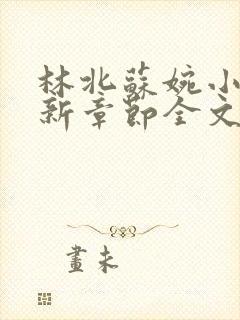 林北蘇婉小
新章節全文
畫未